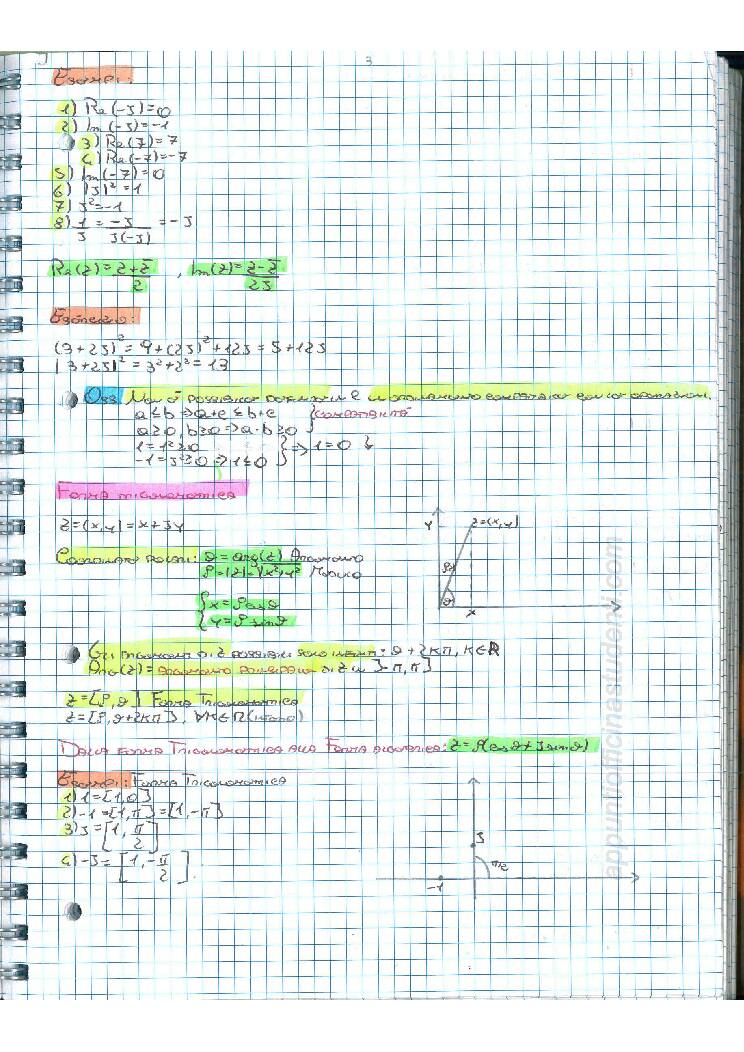 3
Esempi:
1) Re(-j)=0
2) Im(-j)=-1
3) Re(7)=7
4) Re(-7)=-7
5) Im(-7)=0
6) |j|²=1
7) j²=-1
8) 1/j = -j/j(-j) = -j
Re(z)=z+z̄/2 , Im(z)=z-z̄/2j
Esercizio:
(3+2j)²=9+(2j)²+12j=5+12j
|3+2j|²=3²+2²=13
Oss. Non è possibile definire in C un ordinamento compatibile con le operazioni.
a≤b ⇒ a+c≤b+c } compatibilità
a≥0, b≥0 ⇒ a·b≥0
1=1²≥0 } ⇒ 1=0
-1=j²≥0 ⇒ 1≤0
Forma trigonometrica
z=(x,y)=x+jy
y z=(x,y)
Coordinate polari: ϑ=arg(z) Argomento
ρ=|z|=√x²+y² Modulo
ρ ϑ x
{ x=ρcosϑ
{ y=ρsinϑ
Gli argomenti di z possibili sono infiniti: ϑ+2kπ, k∈R
Arg(z)=argomento principale di z in ]-π,π]
z=[ρ,ϑ] Forma Trigonometrica
z=[ρ,ϑ+2kπ], ∀k∈ (intero)
Dalla forma Trigonometrica alla Forma algebrica: z=ρ(cosϑ+jsinϑ)
Esempi: Forma Trigonometrica
1) 1=[1,0]
2) -1=[1,π]=[1,-π]
3) j=[1, π/2]
4) -j=[1, -π/2]
j
π/2
-1
appuntiofficinastudenti.com